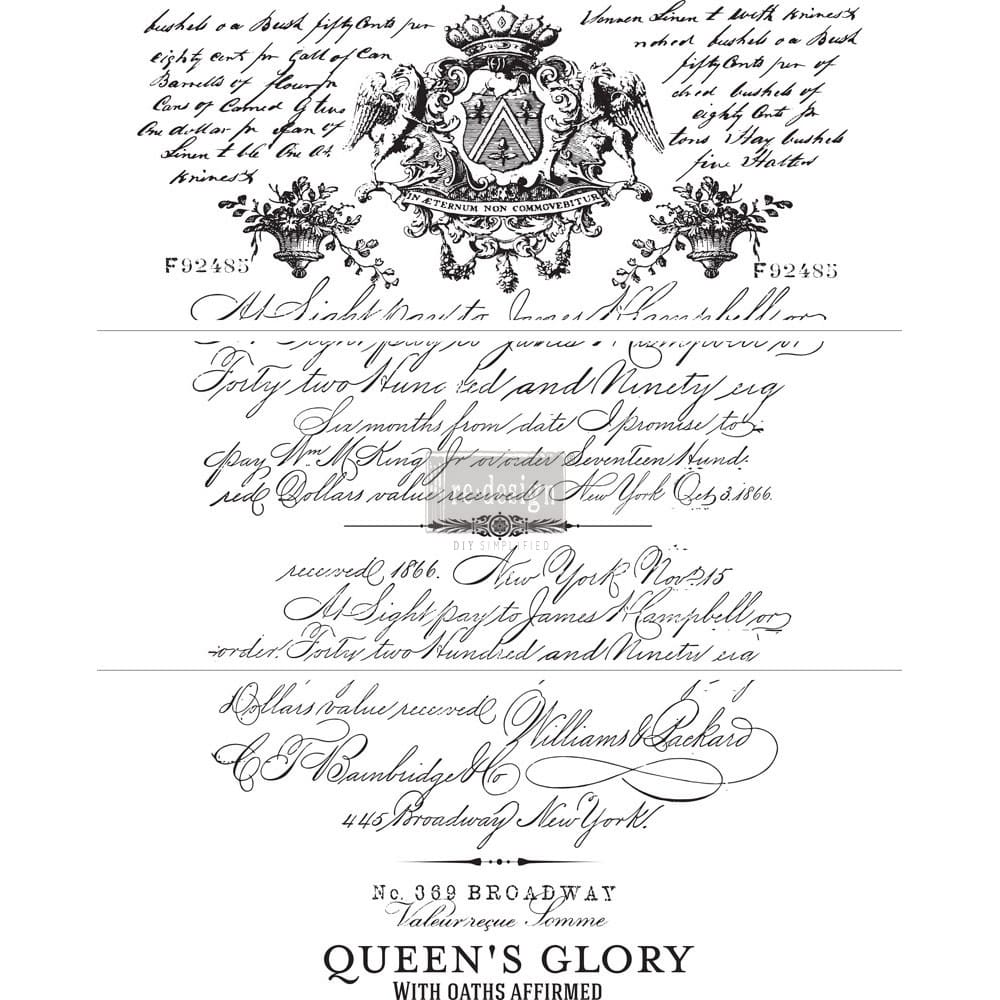 bushels o a Bush fifty Cents per
eighty cent pr Gall of Can
Barrells of flour pr
Cans of Carned g
One dollar pr Can of
Linen t ble One at
Knines't
Linen t with Knines't
bushels o a Bush
fifty Cents per of
bushels of
eighty Cents pr
tons Hay bushels
five
IN ÆTERNUM NON COMMOVEBITUR
F92485
F92485
At Sight pay to James W Campbell or
At Sight pay to James W Campbell or
Forty two Hundred and Ninety eig
Six months from date I promise to
pay Wm M King Jr or order Seventeen Hund.
red Dollars value received New York Oct 3. 1866.
re·design
DIY SIMPLIFIED
received 1866. New York Nov. 15
At Sight pay to James W Campbell or
order. Forty two Hundred and Ninety eig
Dollars value received Williams & Packard
C T Bambridge & Co
445 Broadway New York.
No. 369 BROADWAY
Valeur reçue Somme
QUEEN'S GLORY
WITH OATHS AFFIRMED